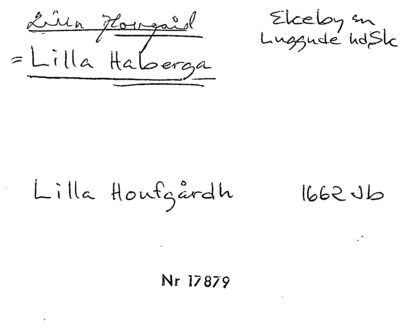 Lilla Hovgård
Ekeby sn
Luggude hd, Sk
= Lilla Haberga
Lilla Houfgårdh 1662 Jb
Nr 17879